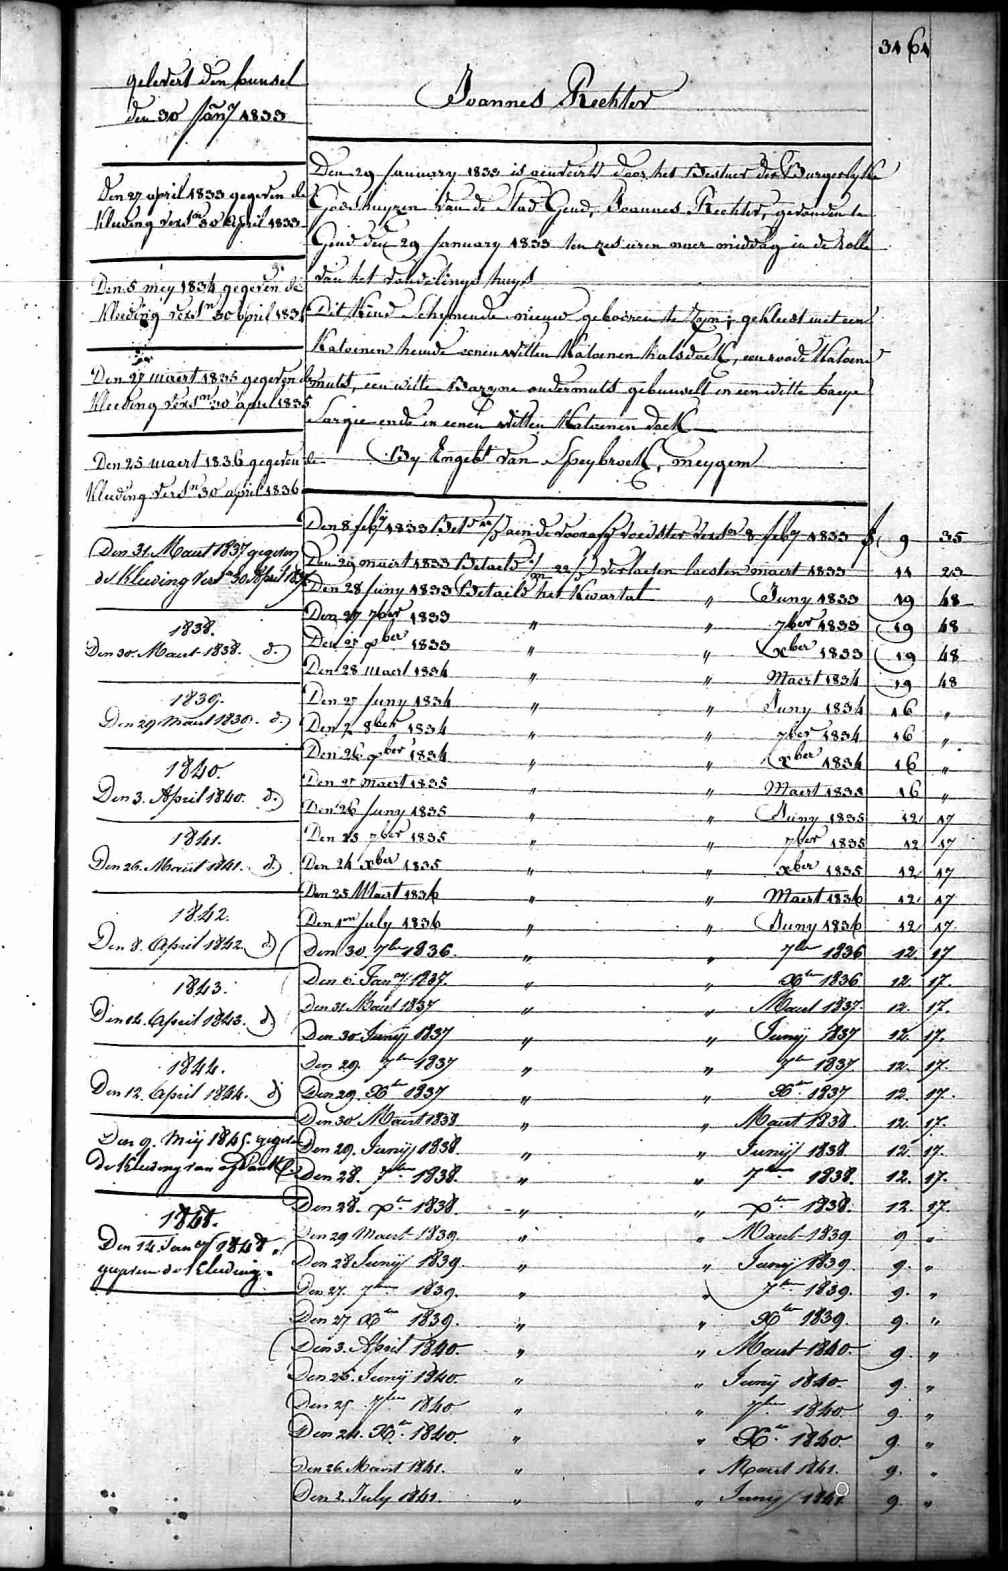 34 64
gelevert den bunsel
den 30 Jan.y 1833
Den 27 april 1833 gegeven de
kleeding verst.n 30 april 1833
Den 5 mey 1834 gegeven de
kleeding verst.n 30 april 1834
Den 27 maert 1835 gegeven de
kleeding verst.n 30 april 1835
Den 25 maert 1836 gegeven de
kleeding verst.n 30 april 1836
Den 31. Maert 1837 gegeven
de kleeding verst.n 30 April 1837
1838.
Den 30. Maert 1838. d.)
1839.
Den 29 Maert 1839. d.)
1840.
Den 3. April 1840. d.)
1841.
Den 26. Maert 1841. d.)
1842.
Den 8. April 1842. d)
1843.
Den 14. April 1843. d)
1844.
Den 12. April 1844. d)
Den 9. Meij 1845. gegeven
de kleeding van
1848.
Den 14. Jan.y 1848
gegeven de kleeding.
Joannes Rechter
Den 29 January 1833 is aenveird door het Bestuer der Burgerlyke
Godshuyzen van de Stad Gend, Joannes Rechter, gevonden te
Gend den 29 January 1833 ten zes uren naer middag in de rolle
van het vondelings huys
Dit kind schynende nieuw geboiren te zyn; gekleed met een
Katoenen hemde eenen witten Katoenen halsdoek, een roode Katoene
muts, een witte Bazyne ondermuts gebunselt in een witte baeye
Sargie ende in eenen witten Katoenen doek
By Engelb.t van Speybroeck, meygem
Den 8 feb.y 1833 Bet.d aen de voorasg voedster verst.n 8 feb.y 1833 f. 9 35
Den 29 maert 1833 Betaeld verloopen laesten maert 1833 11 23
Den 28 Juny 1833 Betaeld het kwartal " Juny 1833 19 48
Den 27 7ber 1833 " " 7ber 1833 19 48
Den 27 xber 1833 " " xber 1833 19 48
Den 28 maert 1834 " " Maert 1834 19 48
Den 27 Juny 1834 " " Juny 1834 16 "
Den 2 8ber 1834 " " 7ber 1834 16 "
Den 26 xber 1834 " " xber 1834 16 "
Den 27 maert 1835 " " Maert 1835 16 "
Den 26 Juny 1835 " " Juny 1835 12 17
Den 25 7ber 1835 " " 7ber 1835 12 17
Den 24 xber 1835 " " xber 1835 12 17
Den 25 Maert 1836 " " Maert 1836 12 17
Den 1en July 1836 " " Juny 1836 12 17
Den 30. 7ber 1836. " " 7ber 1836 12. 17
Den 6. Jan.y 1837. " " Xber 1836 12. 17.
Den 31. Maert 1837 " " Maert 1837. 12. 17.
Den 30. Junij 1837 " " Junij 1837 12. 17.
Den 29. 7ber 1837 " " 7ber 1837 12. 17.
Den 29. Xber 1837 " " Xber 1837 12. 17.
Den 30 Maert 1838 " " Maert 1838. 12. 17.
Den 29. Junij 1838. " " Junij 1838. 12. 17.
Den 28. 7ber 1838. " " 7ber 1838. 12. 17.
Den 28. xber 1838. " " xber 1838. 12. 17.
Den 29 Maert 1839. " " Maert 1839 9 "
Den 28 Junij 1839. " " Junij 1839. 9. "
Den 27. 7ber 1839. " " 7ber 1839. 9. "
Den 27 Xber 1839. " " Xber 1839. 9. "
Den 3. April 1840. " " Maert 1840. 9. "
Den 26. Junij 1840. " " Junij 1840. 9. "
Den 25 7ber 1840 " " 7ber 1840. 9. "
Den 24. Xber 1840. " " Xber 1840. 9. "
Den 26. Maert 1841. " " Maert 1841. 9. "
Den 2. July 1841. " " Junij 1841 9 "